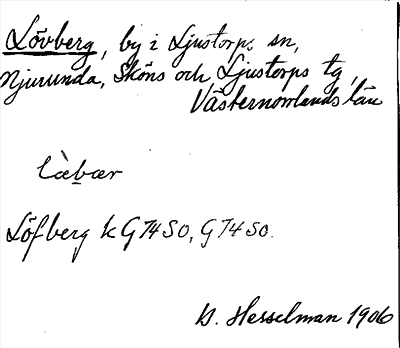 Lövberg, by i Ljustorps sn,
Njurunda, Sköns och Ljustorps tg,
Västernorrlands län
Löfberg k G 74 SO, G 74 SO.
B. Hesselman 1906